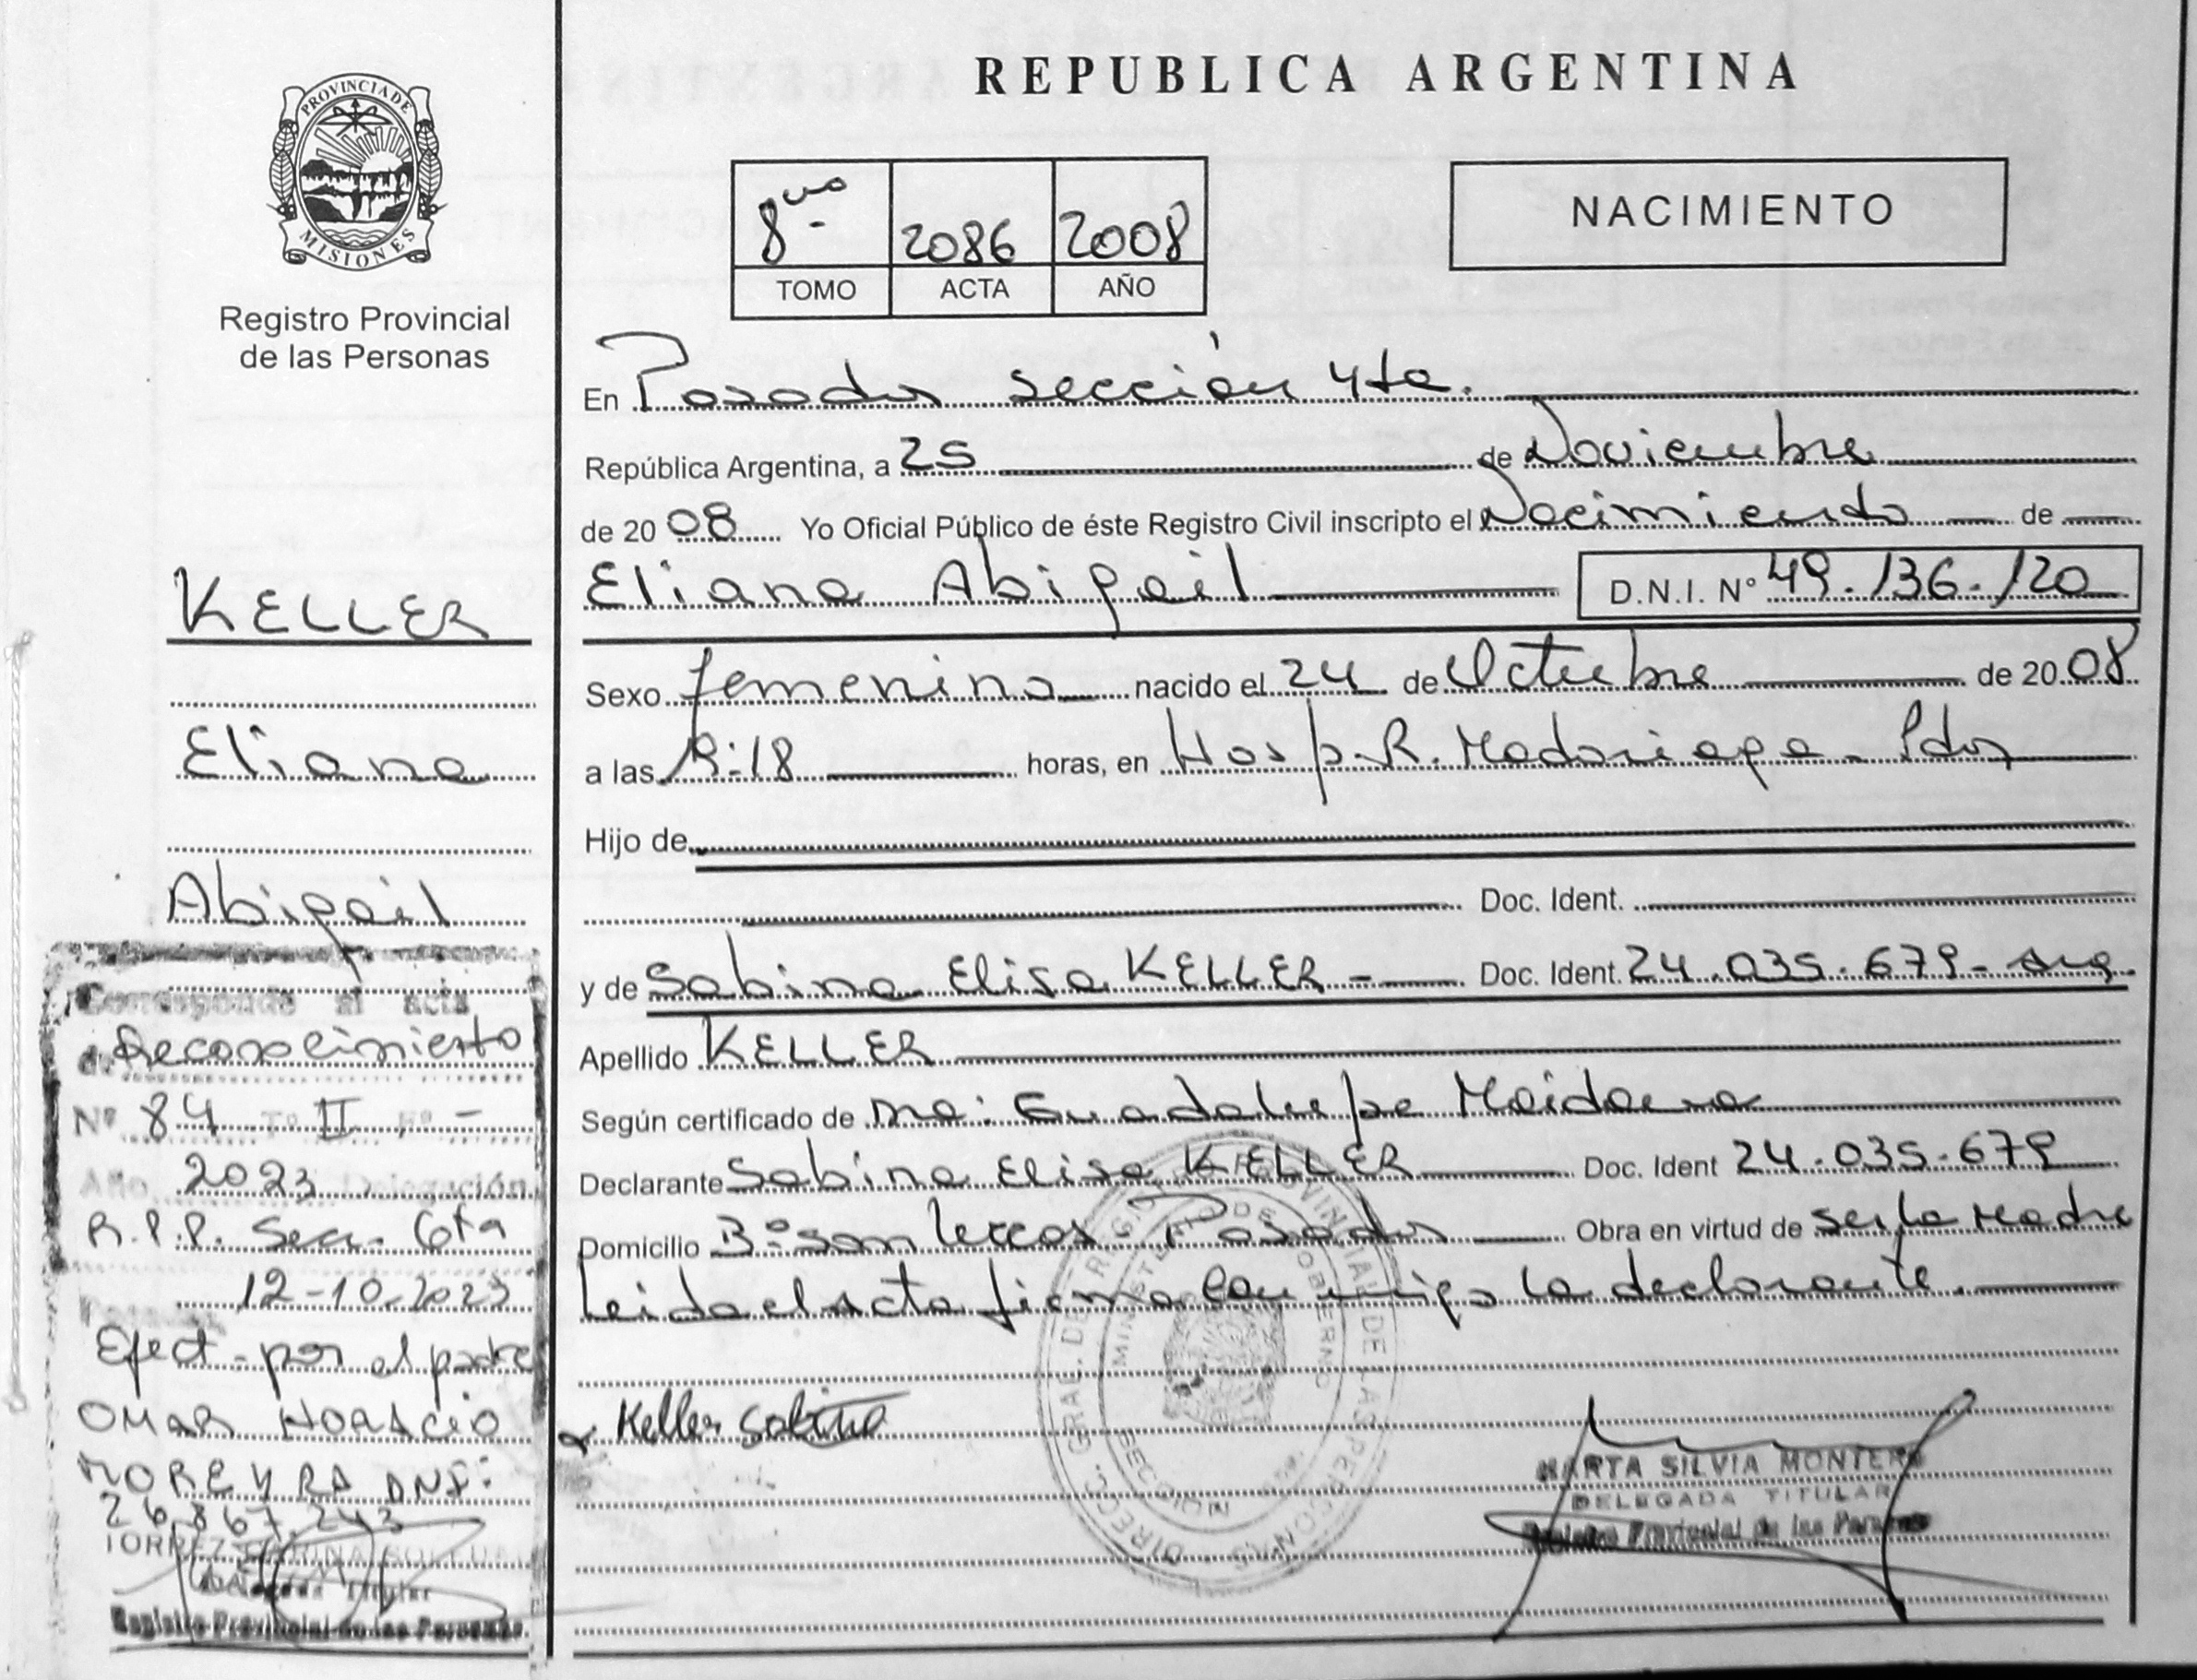 PROVINCIA DE
MISIONES
Registro Provincial
de las Personas
KELLER
Eliana
Abigail
Corresponde al acta
de Reconocimiento
Nº 84 Tº II Fº -
Año 2023 Delegación
R.P.P. Secc. 6ta
12-10-2023
Efect - por el padre
OMAR HORACIO
MOREYRA DNI:
26.867.243
Delegada Titular
Registro Provincial de las Personas
REPUBLICA ARGENTINA
8vo 2086 2008
TOMO ACTA AÑO
NACIMIENTO
En Posadas sección 4ta.
República Argentina, a 25 de Noviembre
de 2008 Yo Oficial Público de éste Registro Civil inscripto el Nacimiento de
Eliana Abigail D.N.I. Nº 49.136.120
Sexo femenino nacido el 24 de Octubre de 2008
a las horas, en Hosp. R. Madariaga - Pdas
Hijo de
Doc. Ident.
y de Sabina Elisa KELLER - Doc. Ident. 24.035.679 - Arg.
Apellido KELLER
Según certificado de Ma: Guadalupe Maidana
Declarante Sabina Elisa KELLER Doc. Ident 24.035.679
Domicilio Bº San Lucas - Posadas Obra en virtud de ser la Madre
Leida el acta firma conmigo la declarante.
Keller Sabina
MARTA SILVIA MONTERO
DELEGADA TITULAR
Registro Provincial de las Personas
DIRECC. GRAL. DEL REG. PROVINCIAL DE LAS PERSONAS
MINISTERIO DE GOBIERNO
SECCION